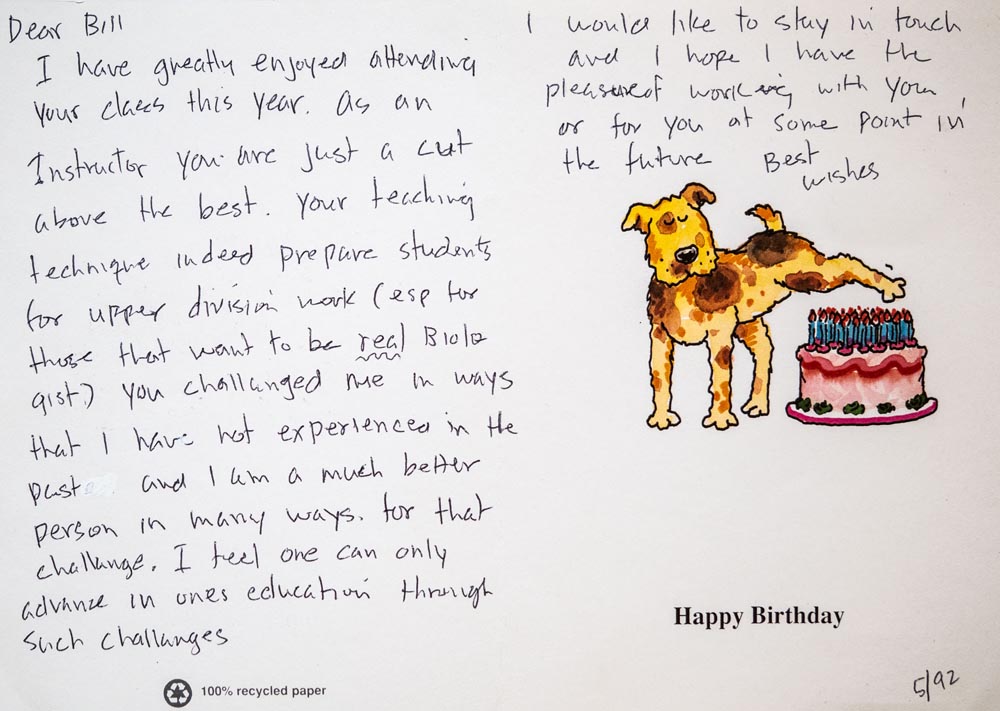 Dear Bill
I have greatly enjoyed attending
your class this year. As an
Instructor you are just a cut
above the best. Your teaching
technique indeed prepare students
for upper division work (esp for
those that want to be real Biolo
gist.) You challanged me in ways
that I have not experienced in the
past and I am a much better
person in many ways. for that
challange. I feel one can only
advance in ones education through
such challanges
100% recycled paper
I would like to stay in touch
and I hope I have the
pleasure of working with you,
or for you at some point in
the future Best
wishes
Happy Birthday
5/92